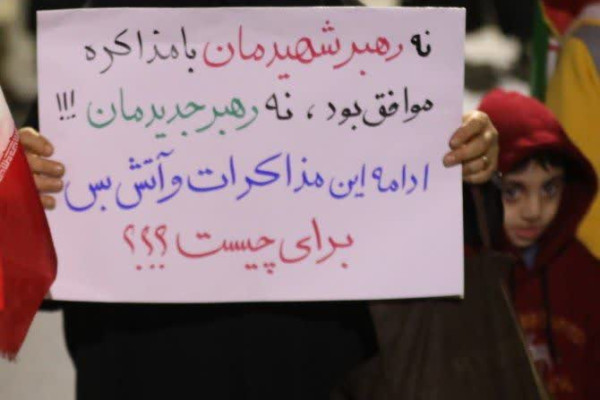 نه رهبر شهیدمان با مذاکره
موافق بود، نه رهبر جدیدمان !!!
ادامه این مذاکرات و آتش بس
برای چیست ؟؟؟